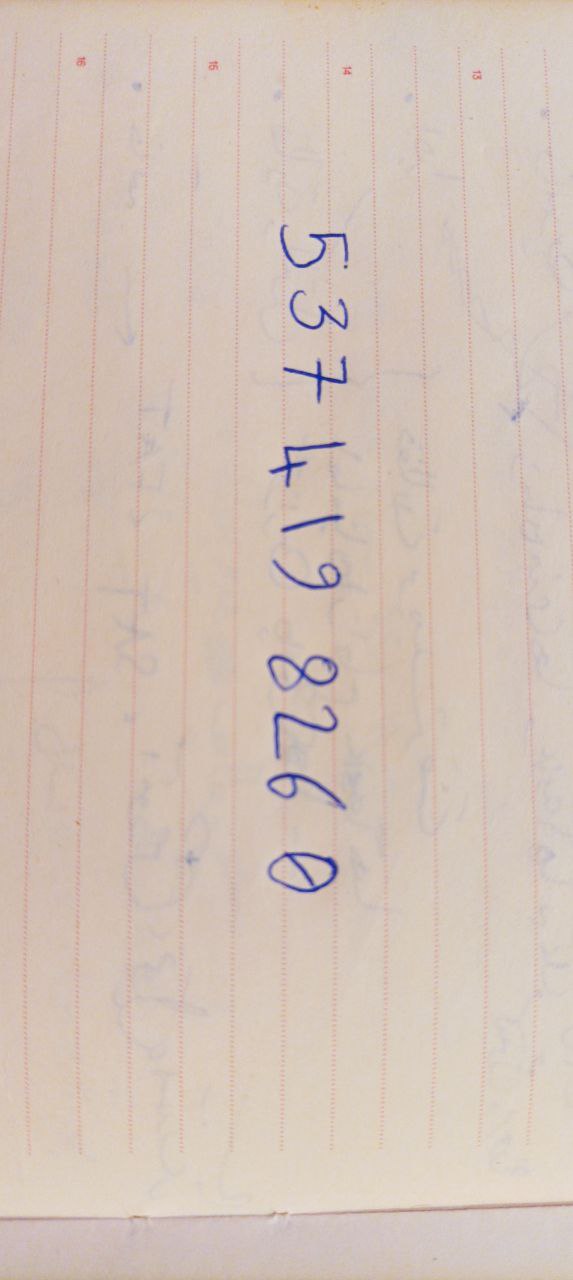 13
14
537 419 8260
15
16